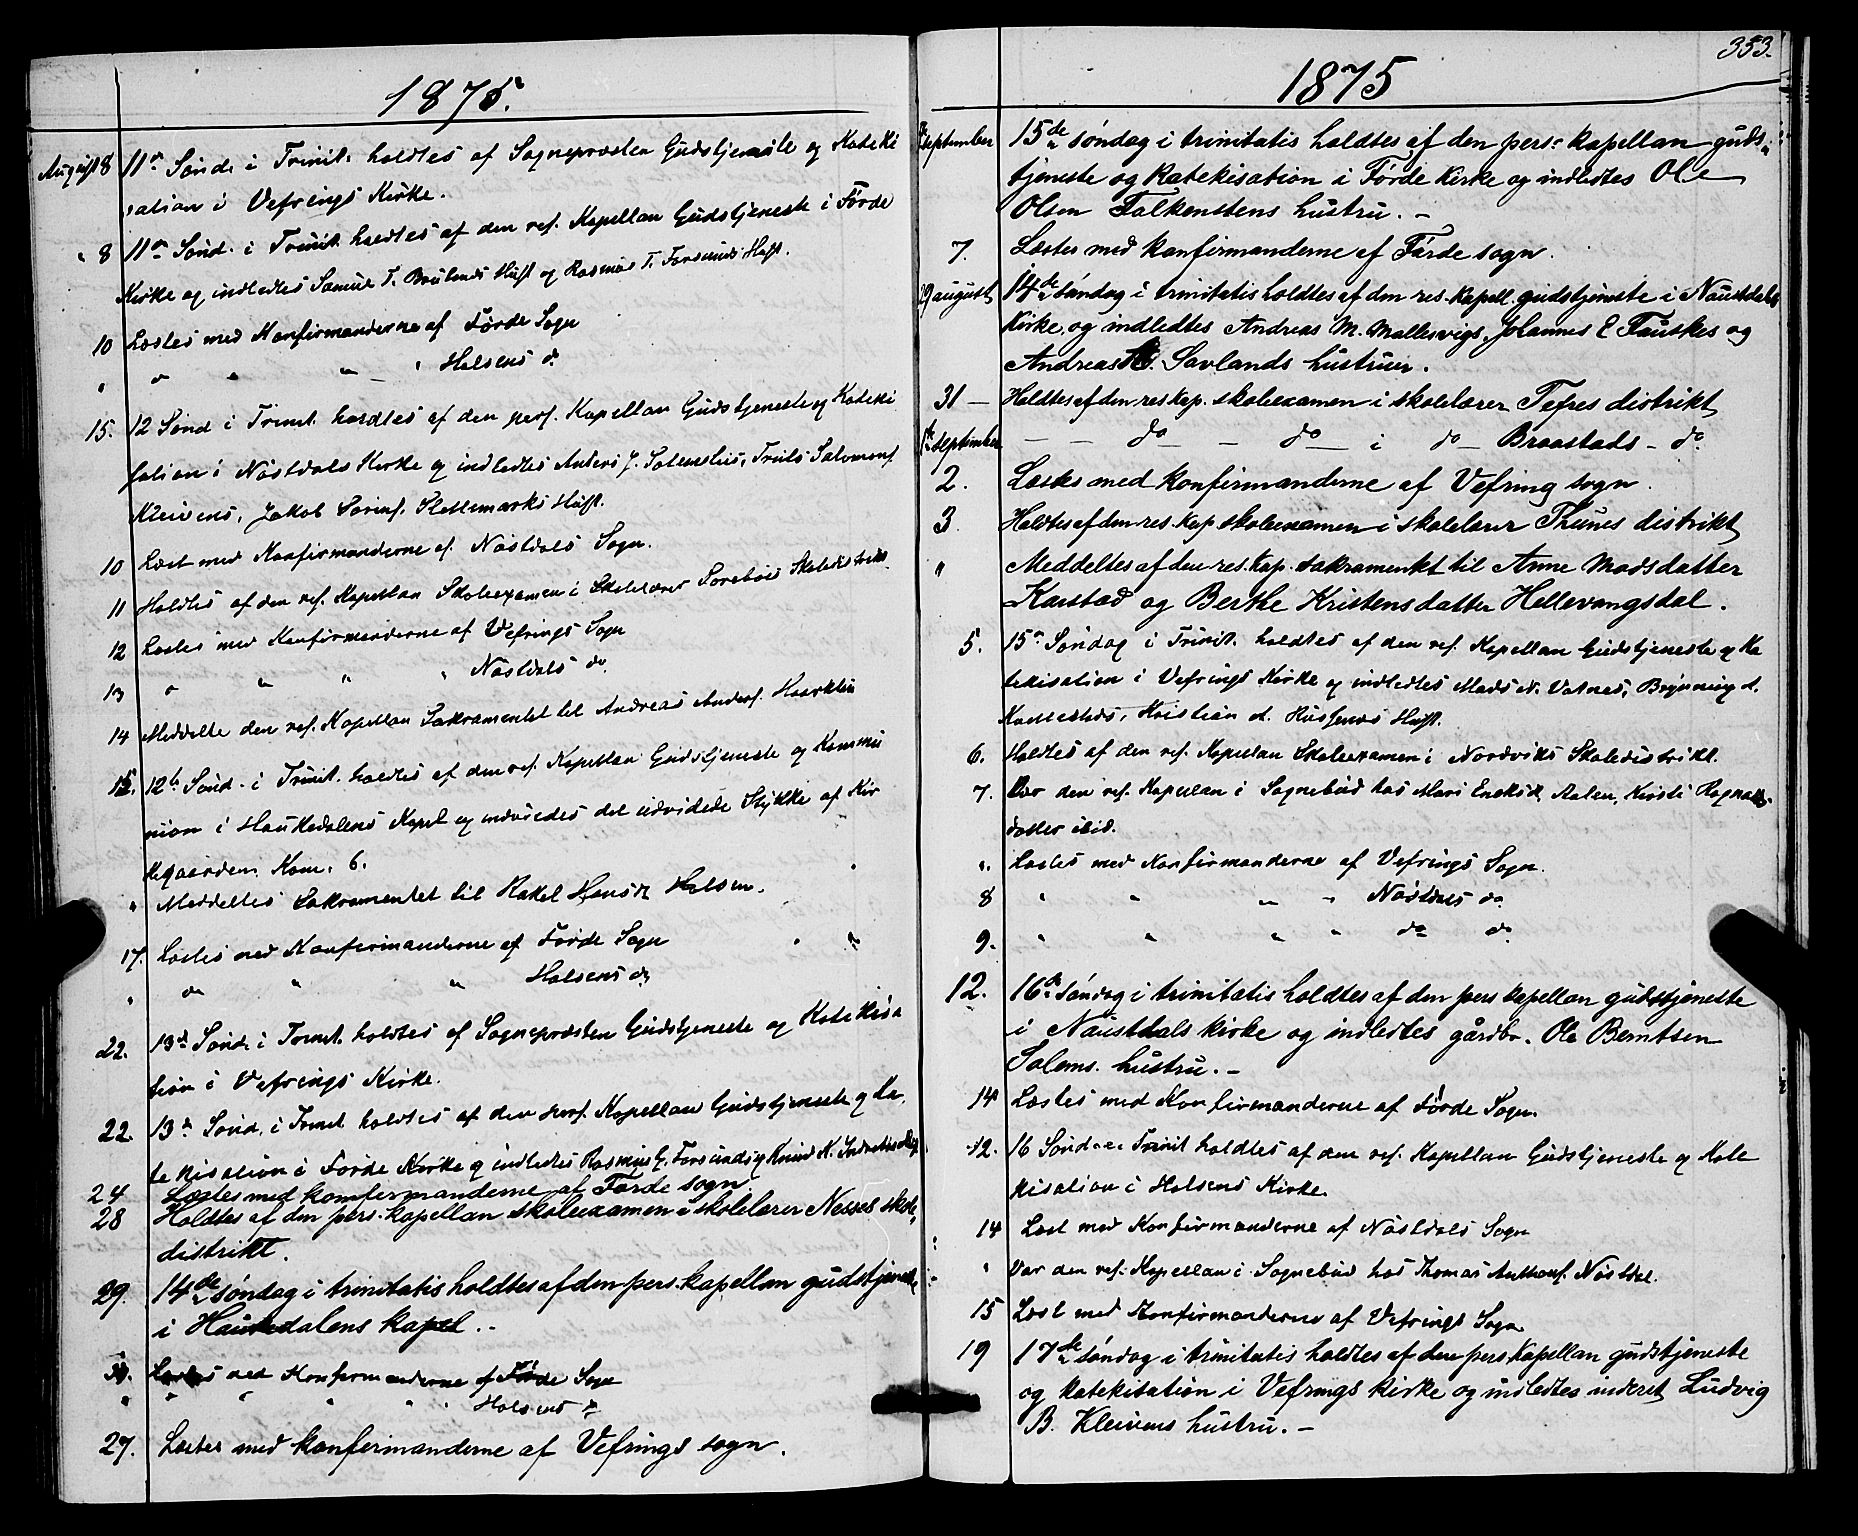 1875.
August 8 11te Sønd. i Trinit. holdtes af Sognepræsten Gudstjeneste og Kateki
sation i Vefrings Kirke.
" 8 11te Sønd. i Trinit. holdtes af den res. Kapellan Gudstjeneste i Førde
Kirke og indledtes Samuel T. Brulands Hust. og Rasmus T. Forsunds Hust.
10 Læstes med Konfirmanderne af Førde Sogn
" do " " " Holsens do
15. 12 Sønd i Trinit. holdtes af den pers. Kapellan Gudstjeneste og Kateki
sation i Nøstdals Kirke og indledtes Anders J. Solemslies, Truls Salomons.
Kleivens, Jakob Sørens. Slettemarks Hust.
10 Læst med Konfirmanderne af Nøstdals Sogn.
11 Holdtes af den res. Kapellan Skoleexamen i Skolelærer Sørebøs Skoledistrikt.
12 Læstes med Konfirmanderne af Vefrings Sogn
13 " " " " Nøstdals do.
14 Meddelte den res. Kapellan Sakramentet til Andreas Anders. Haarklau
15. 12te Sønd. i Trinit. holdtes af den res. Kapellan Gudstjeneste og Kommu
nion i Haukedalens Kapel og indviedes det udvidede Stykke af Kir
kegaarden. Kom. 6.
" Meddeltes Sakramentet til Rakel Hansd. Holsen.
17. Læstes med Konfirmanderne af Førde Sogn
" do " " Holsens do
22. 13de Sønd. i Trinit. holdtes af Sognepræsten Gudstjeneste og Katekisa
tion i Vefrings Kirke.
22. 13de Sønd. i Trinit holdtes af den pers. Kapellan Gudstjeneste og Ka,
tekisation i Førde Kirke og indledtes Rasmus G. Forsunds og Knud K.
24 Læstes med konfirmanderne af Førde sogn.
28 Holdtes af den pers. kapellan skoleexamen i skolelærer Nesses skole,
distrikt.
29. 14de søndag i trinitatis holdtes af den pers. kapellan gudstjeneste
i Haukedalens kapel. -
31. Læstes med Konfirmanderne af Førde Sogn
" " " " " Holsens do
27. Læstes med konfirmanderne af Vefrings sogn.
353.
1875
5te september 15de søndag i trinitatis holdtes af den pers. kapellan guds,
tjeneste og katekisation i Førde Kirke og indledtes Ole
Olsen Falkenstens hustru. -
7. Læstes med konfirmanderne af Førde sogn.
29 august 14de søndag i trinitatis holdtes af den res. kapell. gudstjeneste i Naustdals
kirke, og indledtes Andreas M. Mallesvigs, Johannes E Fauskes og
Andreas G. Savlands hustruer.
31 - Holdtes af den res. kap. skoleexamen i skolelærer Tefres distrikt
1ste september - - do - do i do - Braastads - do
2. Læstes med konfirmanderne af Vefring sogn.
3. Holdtes af den res. kap. skoleexamen i skolelærer Thunes distrikt
" Meddeltes af den res. kap. sakramentet til Anne Madsdatter
Karstad og Berthe Kristensdatter Hellevangsdal.
5. 15de Søndag i Trinit. holdtes af den res. Kapellan Gudstjeneste og Ka
tekisation i Vefrings Kirke og indledtes Mads N. Vatnes, Brynning A.
Kallesteds, Kristian A. Husenes Hust.
6. Holdtes af den res. Kapellan Skoleexamen i Nordviks Skoledistrikt.
7. Var den res. Kapellan i Sognebud hos Mari Eriksd. Aalen, Kirsti Ragnalds
datter ibid.
". Læstes med Konfirmanderne af Vefrings Sogn.
8 " " " " Nøstdals do
9. " " " " do do.
12. 16de søndag i trinitatis holdtes af den pers kapellan gudstjeneste
i Naustdals kirke og indledtes gårdbr. Ole Berntsen
Solems. hustru. -
14 Læstes med Konfirmanderne af Førde Sogn.
12. 16 Søndag Trinit holdtes af den res. Kapellan Gudstjeneste og Kate
kisation i Holsens Kirke.
14 Læst med Konfirmanderne af Nøstdals Sogn
" Var den res. Kapellan i Sognebud hos Thomas Anthons. Nøstdal.
15 Læst med Konfirmanderne af Vefrings Sogn
19 17de søndag i trinitatis holdtes af den pers kapellan gudstjeneste
og katekisation i Vefrings kirke og indledtes inderst Ludvig
B. Kleivens hustru. -